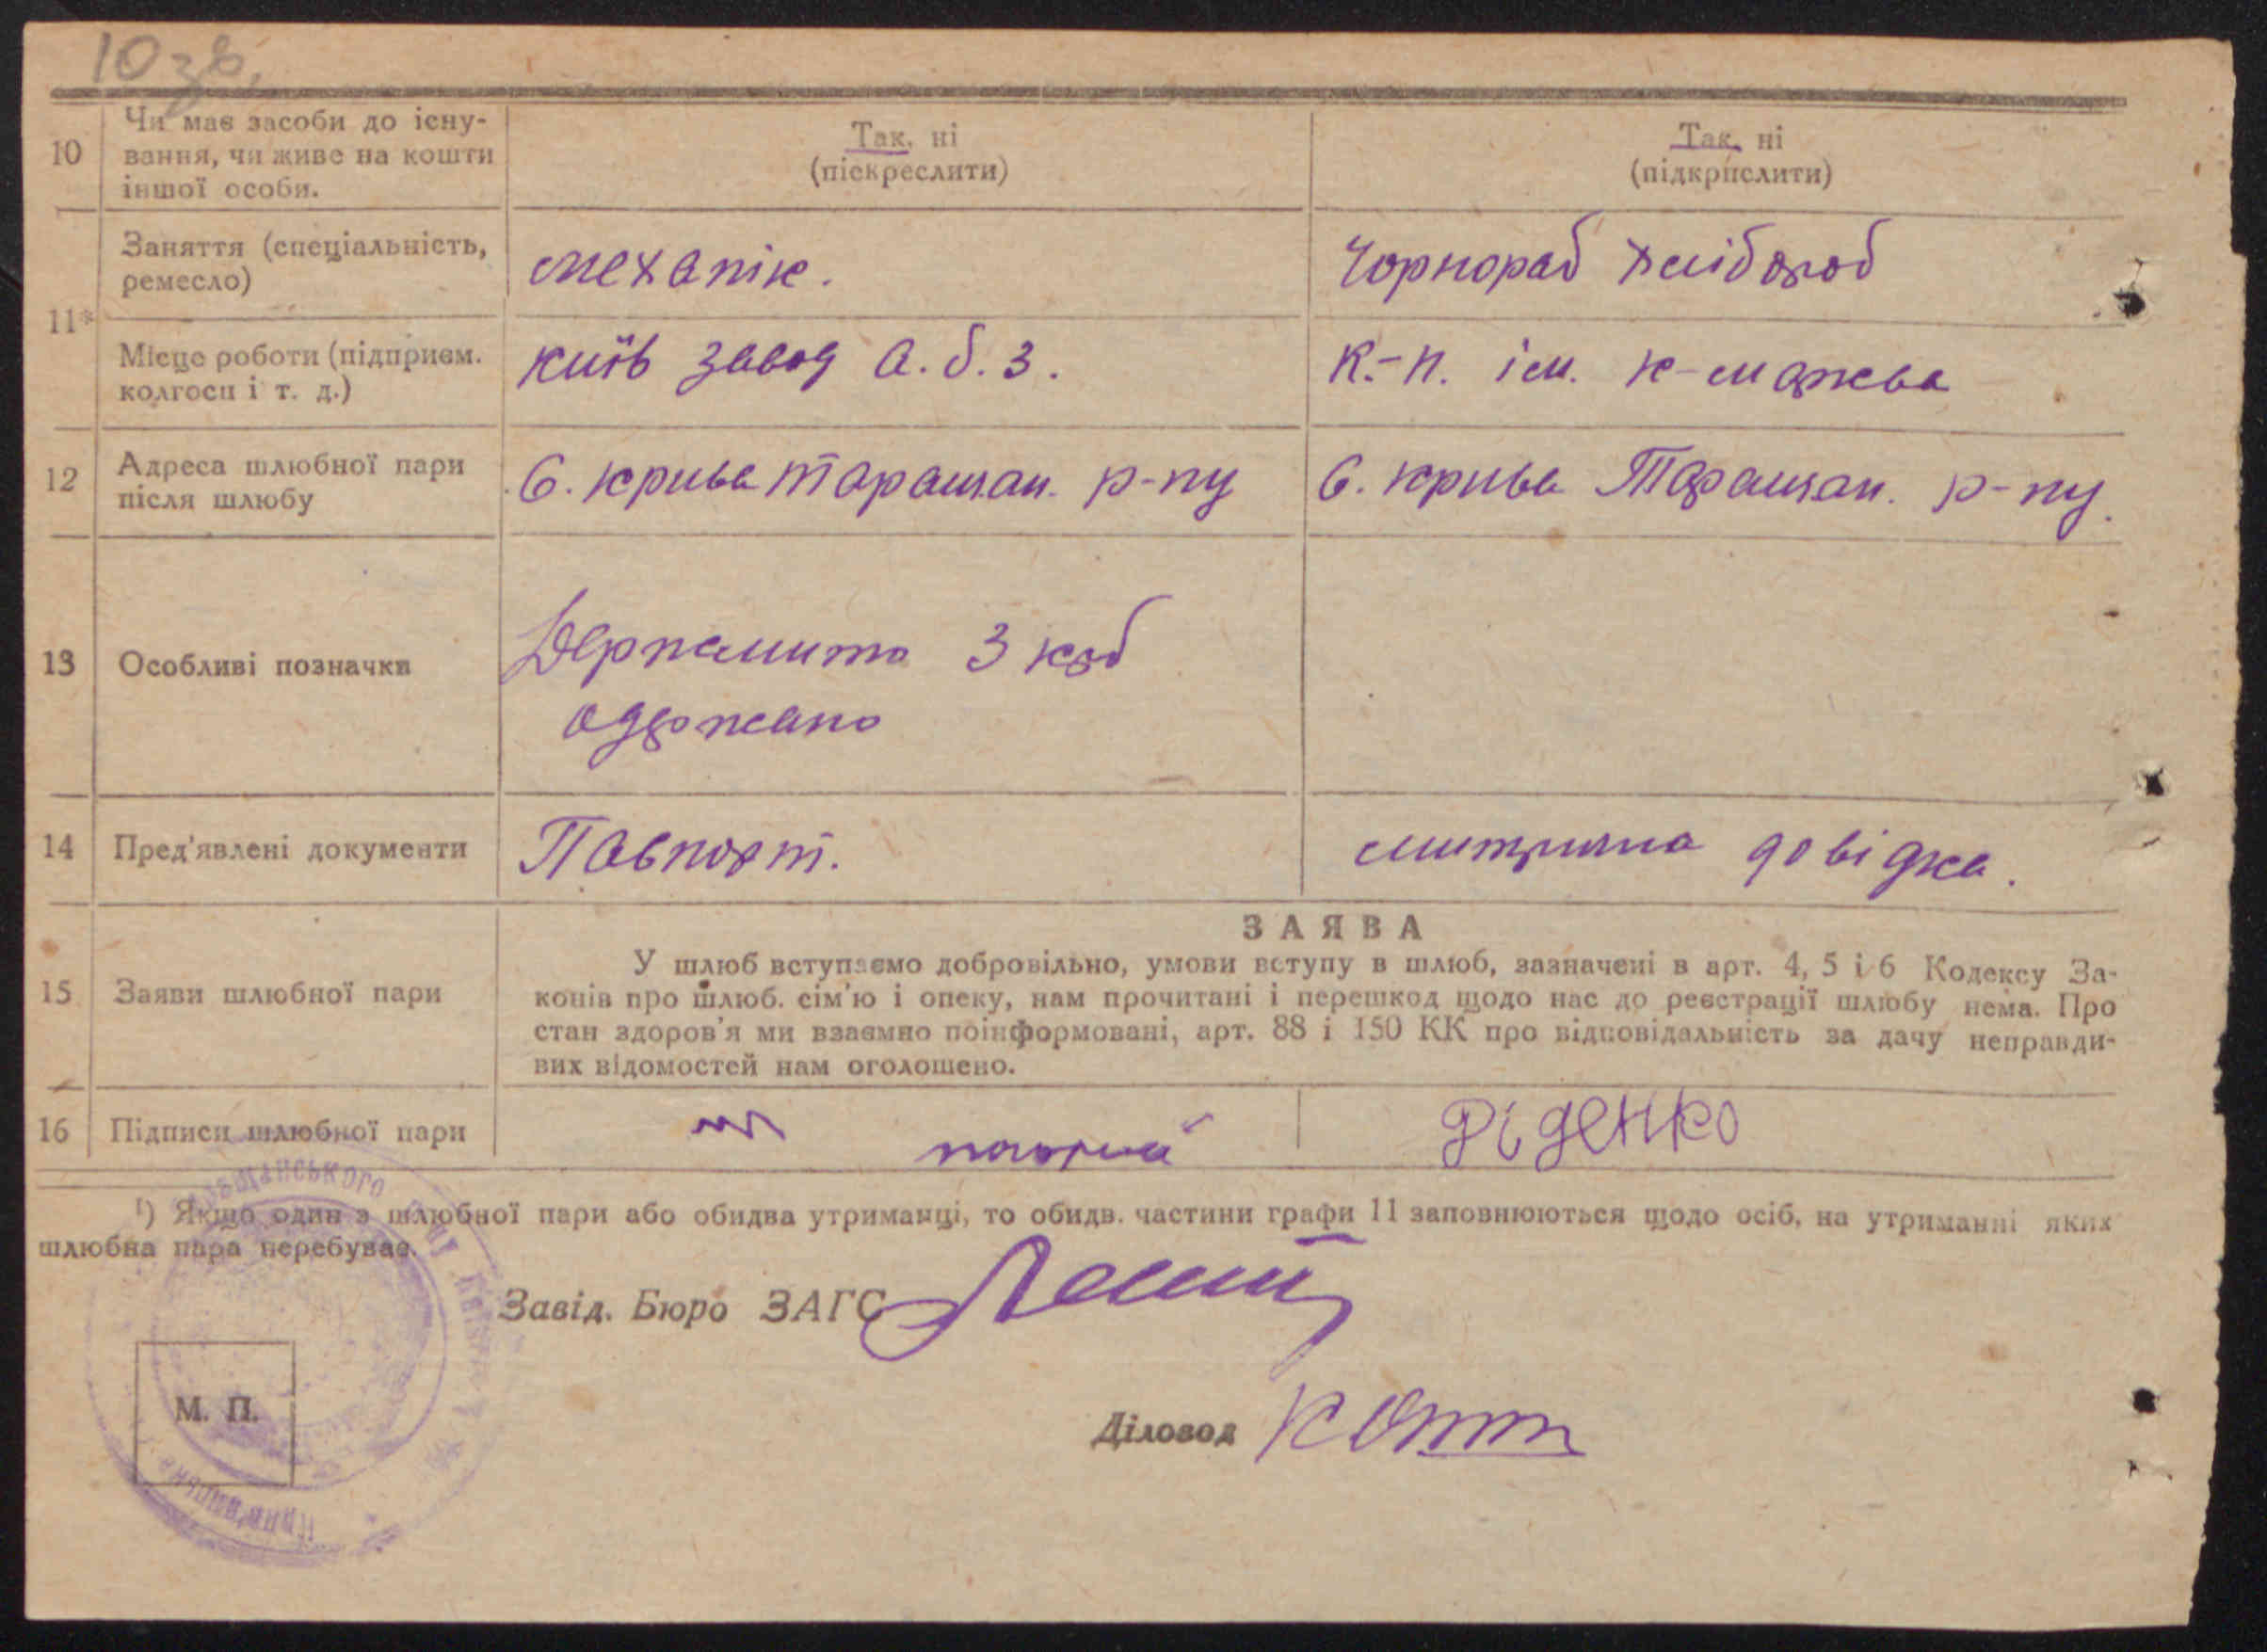 10 зв.
10
Чи має засоби до існу-
вання, чи живе на кошти
іншої особи.
Так, ні
(піскреслити)
Так, ні
(підкрпслити)
11*
Заняття (спеціальність,
ремесло)
механік.
Чорнораб хлібороб
Місце роботи (підприєм.
колгосп і т. д.)
Київ завод А. б. З.
К.-п. ім. К-маркса
12
Адреса шлюбної пари
після шлюбу
С. крива таращан. р-ну
С. крива Таращан. р-ну.
13
Особливі позначки
Держмито 3 карб
одержано
14
Пред'явлені документи
Паспорт.
митрична довідка.
15
Заяви шлюбної пари
ЗАЯВА
У шлюб вступаємо добровільно, умови вступу в шлюб, зазначені в арт. 4, 5 і 6 Кодексу За-
конів про шлюб. сім'ю і опеку, нам прочитані і перешкод щодо нас до реєстрації шлюбу нема. Про
стан здоров'я ми взаємно поінформовані, арт. 88 і 150 КК про відповідальність за дачу неправди-
вих відомостей нам оголошено.
16
Підписи шлюбної пари
Діденко
¹) Якщо один з шлюбної пари або обидва утриманці, то обидв. частини графи 11 заповнюються щодо осіб, на утриманні яких
шлюбна пара перебуває.
Завід. Бюро ЗАГС
М. П.
Діловод